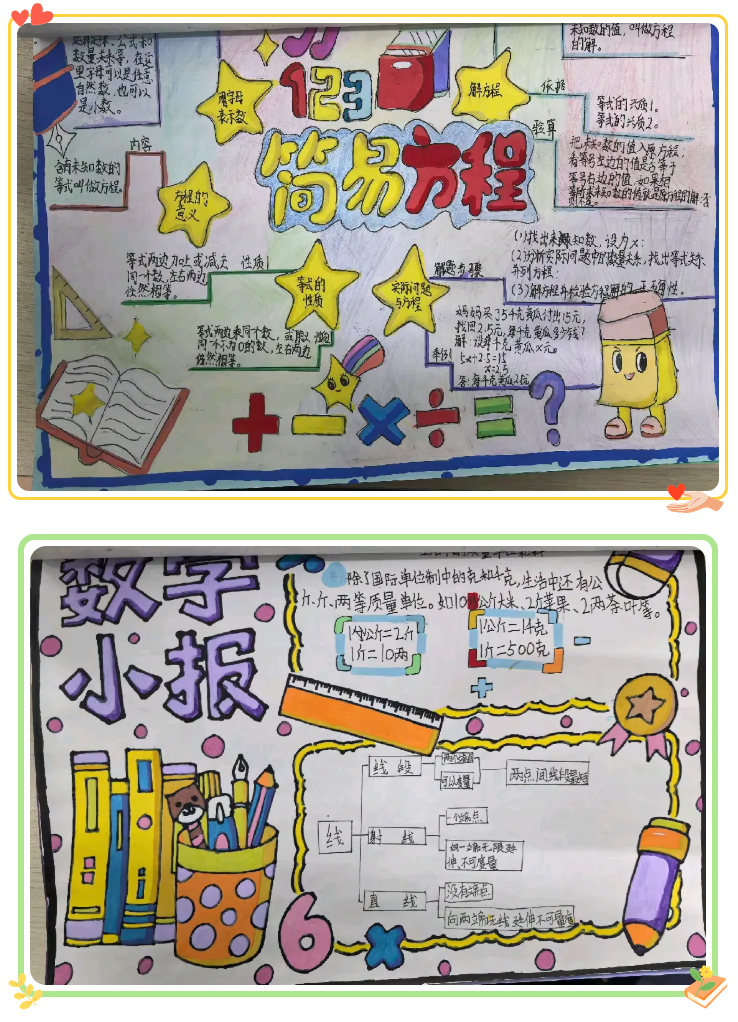 数量关系等，在这
里字母可以是任意
自然数，也可以
是小数。
用字母
表示数
123
解方程
未知数的值，叫做方程
的解。
依据
等式的兴质1。
等式的兴质2。
验算
把未知数的值入原方程，
看等号左边的值是否等于
等号右边的值，如果相
内容
含有未知数的
等式叫做方程。
方程的
意义
简易方程
等式两边加上或减去 性质1
同一个数，左右两边
依然相等。
等式两边乘同个数，或除以
同一个不为0的数，左右两边
依然相等。
等式的
性质
实际问题
与方程
解题步骤
(1)找出未知数，设为x：
(2)分析实际问题中的数量关系，找出等式关系
并列方程：
(3)解方程并检验方程解的正确性。
举例
妈妈买了5千克黄瓜付出15元，
找回2.5元，每千克黄瓜多少钱？
解：设每千克黄瓜x元。
5x+2.5=15
x=2.5
答：每千克黄瓜2.5元
+ − × ÷ = ?
数学
小报
除了国际单位制中的克和千克，生活中还有公
斤、斤、两等质量单位。如10公斤大米、2斤苹果、2两茶叶等。
1公斤=2斤
1斤=10两
1公斤=14克
1斤=500克
线
线段
可以度量
两点间线段最短
射线
一个端点
向一端无限延
伸，不可度量
直线
没有端点
向两端无线延伸不可量度
6
×